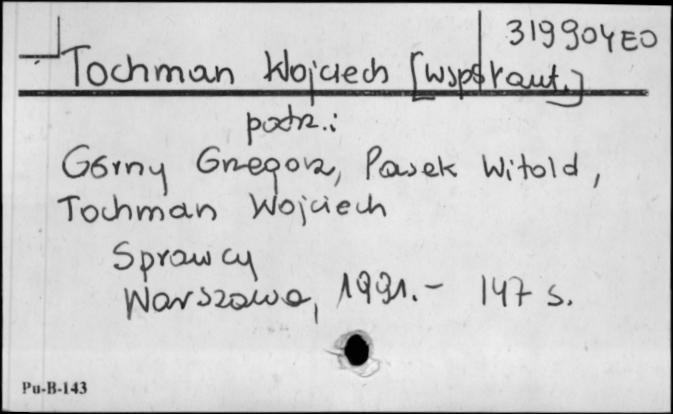 319904EO
Tochman Wojciech [współaut.]
patrz.:
Górny Grzegorz, Pasek Witold,
Tochman Wojciech
Sprawcy
Warszawa, 1991.- 147 s.
Pu-B-143